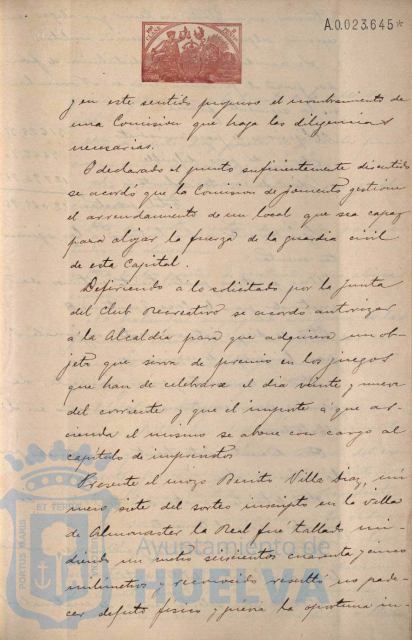 A.0.023.645*
y en este sentido propuso el nombramiento de
una Comision que haga las diligencias
necesarias.
Declarado el punto suficientemente discutido
se acordó que la Comision de fomento gestione
el arrendamiento de un local que sea capaz
para alojar la fuerza de la guardia civil
de esta Capital.
Defiriendo á lo solicitado por la junta
del Club Recreativo se acordó autorizar
á la Alcaldia para que adquiera un ob-
jeto que sirva de premio en los juegos
que han de celebrarse el dia veinte y nueve
del corriente y que el importe á que as-
cienda el mismo se abone con cargo al
capitulo de imprevistos
Presente el mozo Benito Villa Diaz, nú-
mero siete del sorteo inscripto en la villa
de Almonaster la Real fué tallado mi-
diendo un metro seiscientos cuarenta y cinco
milimetros y reconocido resultó no pade-
cer defecto fisico y previa la oportuna in-
PORTUS MARIS
ET TERRAE
Ayuntamiento de
HUELVA